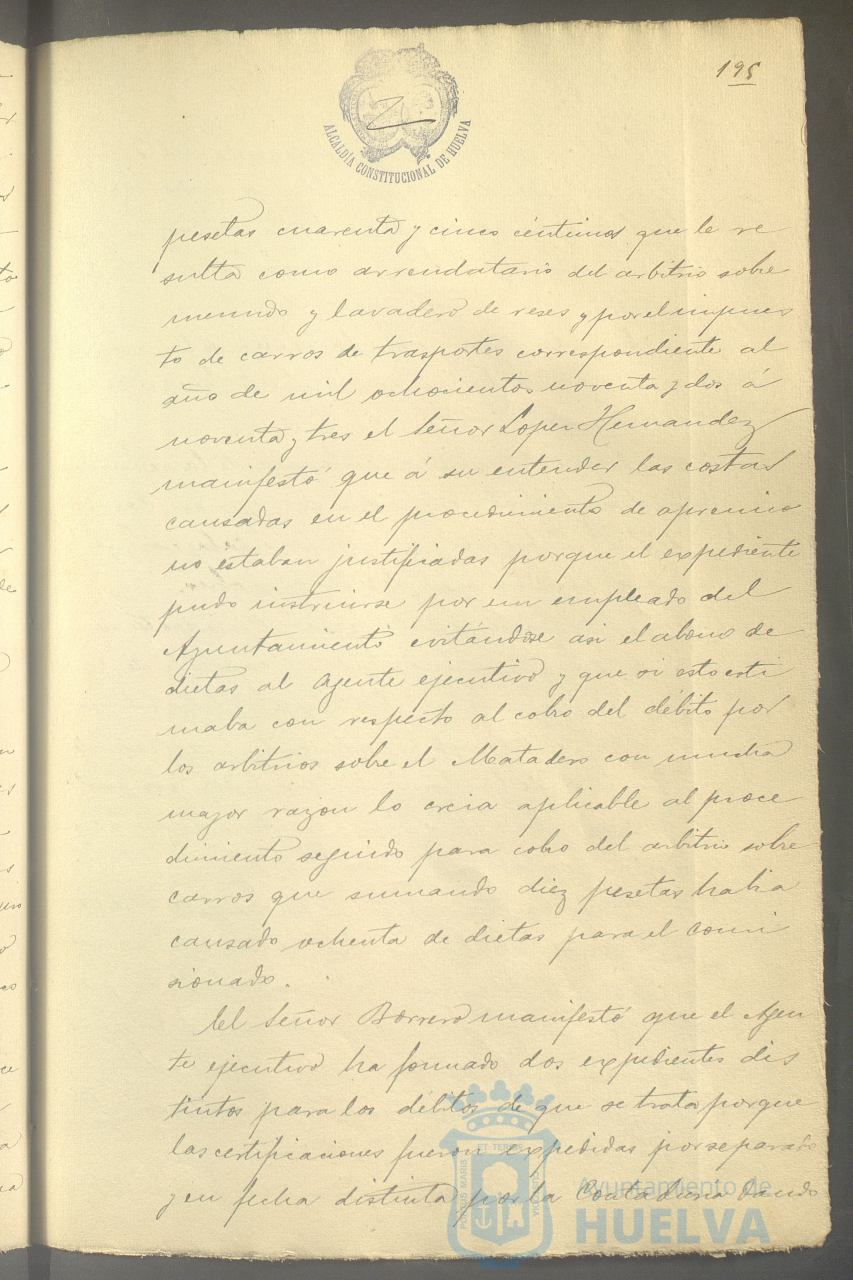 195
ALCALDÍA CONSTITUCIONAL DE HUELVA
pesetas cuarenta y cinco céntimos que le re
sulta como arrendatario del arbitrio sobre
menudo y lavadero de reses y por el impues
to de carros de trasportes correspondiente al
año de mil ochocientos noventa y dos á
noventa y tres el Señor Lopez Hernandez
manifestó que á su entender las costas
causadas en el procedimiento de apremio
no estaban justificadas porque el expediente
pudo instruirse por un empleado del
Ayuntamiento evitándose asi el abono de
dietas al Agente ejecutivo y que si esto esti
maba con respecto al cobro del débito por
los arbitrios sobre el Matadero con mucha
mayor razon lo creia aplicable al proce
dimiento seguido para cobro del arbitrio sobre
carros que sumando diez pesetas habia
causado ochenta de dietas para el Comi
sionado.
El Señor Borrero manifestó que el Agen
te ejecutivo ha formado dos expedientes dis
tintos para los débitos de que se trata porque
las certificaciones fueron expedidas por separado
y en fecha distinta por la Contaduria dando
PORTUS MARIS ET TERRE CUSTODIA
Ayuntamiento de
HUELVA